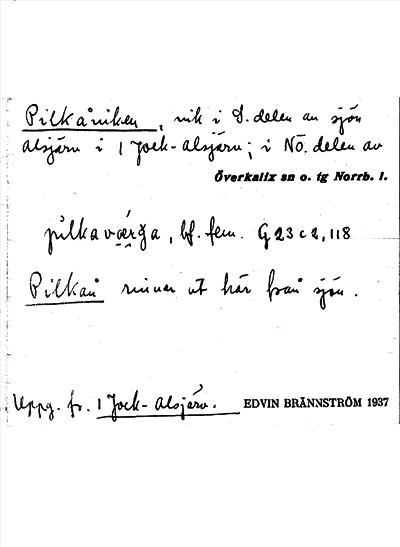 Pilkåviken, vik i S. delen av sjön
Alsjärv i 1 Jock-Alsjärv; i NÖ. delen av
Överkalix sn o. tg Norrb. l.
pìlkavæ̀rg̑a, bf. fem. G 23 c 2, 118
Pilkån rinner ut här från sjön.
Uppg. fr. 1 Jock-Alsjärv. EDVIN BRÄNNSTRÖM 1937